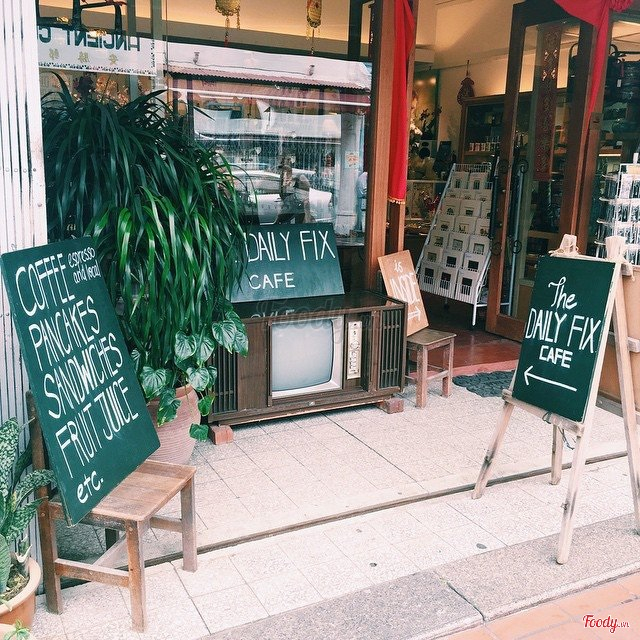 ANCIENT C
COFFEE espresso and local
PANCAKES
SANDWICHES
FRUIT JUICE
etc.
DAILY FIX
CAFE
The
DAILY FIX
CAFE
Foody.vn